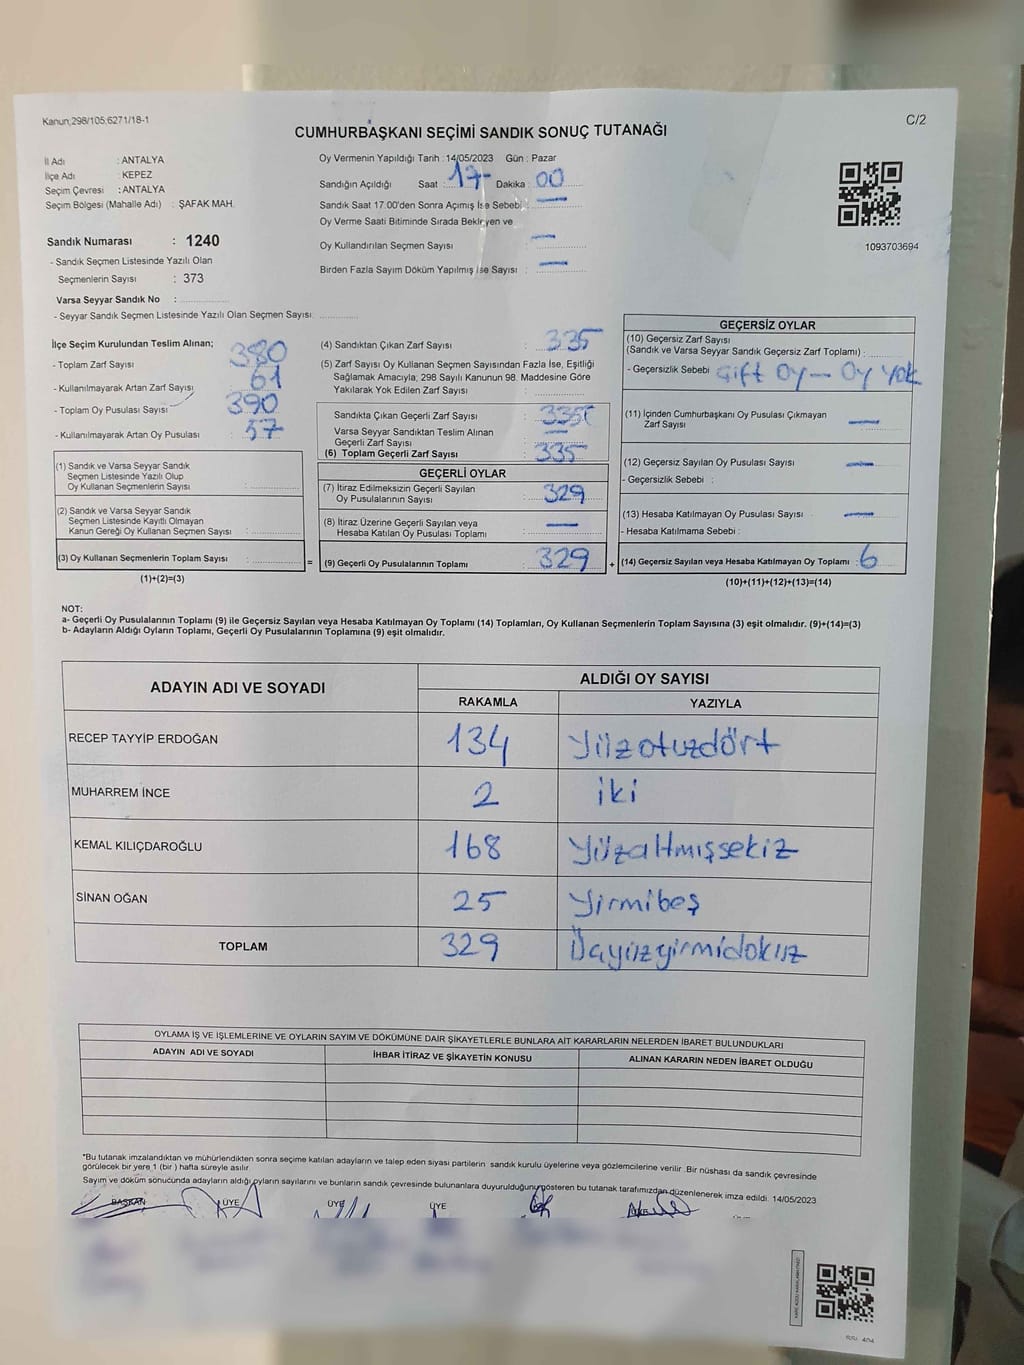 Kanun;298/105;6271/18-1
C/2
CUMHURBAŞKANI SEÇİMİ SANDIK SONUÇ TUTANAĞI
İl Adı : ANTALYA
İlçe Adı : KEPEZ
Seçim Çevresi : ANTALYA
Seçim Bölgesi (Mahalle Adı) : ŞAFAK MAH.
Oy Vermenin Yapıldığı Tarih : 14/05/2023 Gün : Pazar
Sandığın Açıldığı Saat : 17- Dakika : 00
Sandık Saat 17.00'den Sonra Açımış İse Sebebi : —
Oy Verme Saati Bitiminde Sırada Bekleyen ve
Oy Kullandırılan Seçmen Sayısı —
Birden Fazla Sayım Döküm Yapılmış İse Sayısı : —
1093703694
Sandık Numarası : 1240
- Sandık Seçmen Listesinde Yazılı Olan
Seçmenlerin Sayısı : 373
Varsa Seyyar Sandık No :
- Seyyar Sandık Seçmen Listesinde Yazılı Olan Seçmen Sayısı:
İlçe Seçim Kurulundan Teslim Alınan;
- Toplam Zarf Sayısı : 380
- Kullanılmayarak Artan Zarf Sayısı : 61
- Toplam Oy Pusulası Sayısı : 390
- Kullanılmayarak Artan Oy Pusulası : 57
(1) Sandık ve Varsa Seyyar Sandık
Seçmen Listesinde Yazılı Olup
Oy Kullanan Seçmenlerin Sayısı :
(2) Sandık ve Varsa Seyyar Sandık
Seçmen Listesinde Kayıtlı Olmayan
Kanun Gereği Oy Kullanan Seçmen Sayısı :
(3) Oy Kullanan Seçmenlerin Toplam Sayısı :
(1)+(2)=(3)
(4) Sandıktan Çıkan Zarf Sayısı : 335
(5) Zarf Sayısı Oy Kullanan Seçmen Sayısından Fazla İse, Eşitliği
Sağlamak Amacıyla; 298 Sayılı Kanunun 98. Maddesine Göre
Yakılarak Yok Edilen Zarf Sayısı :
Sandıkta Çıkan Geçerli Zarf Sayısı : 335
Varsa Seyyar Sandıktan Teslim Alınan
Geçerli Zarf Sayısı : —
(6) Toplam Geçerli Zarf Sayısı : 335
GEÇERLİ OYLAR
(7) İtiraz Edilmeksizin Geçerli Sayılan
Oy Pusulalarının Sayısı : 329
(8) İtiraz Üzerine Geçerli Sayılan veya
Hesaba Katılan Oy Pusulası Toplamı : —
= (9) Geçerli Oy Pusulalarının Toplamı : 329 +
GEÇERSİZ OYLAR
(10) Geçersiz Zarf Sayısı
(Sandık ve Varsa Seyyar Sandık Geçersiz Zarf Toplamı) :
- Geçersizlik Sebebi : Çift Oy — Oy Yok
(11) İçinden Cumhurbaşkanı Oy Pusulası Çıkmayan
Zarf Sayısı : —
(12) Geçersiz Sayılan Oy Pusulası Sayısı : —
- Geçersizlik Sebebi :
(13) Hesaba Katılmayan Oy Pusulası Sayısı : —
- Hesaba Katılmama Sebebi :
(14) Geçersiz Sayılan veya Hesaba Katılmayan Oy Toplamı : 6
(10)+(11)+(12)+(13)=(14)
NOT:
a- Geçerli Oy Pusulalarının Toplamı (9) ile Geçersiz Sayılan veya Hesaba Katılmayan Oy Toplamı (14) Toplamları, Oy Kullanan Seçmenlerin Toplam Sayısına (3) eşit olmalıdır. (9)+(14)=(3)
b- Adayların Aldığı Oyların Toplamı, Geçerli Oy Pusulalarının Toplamına (9) eşit olmalıdır.
ADAYIN ADI VE SOYADI ALDIĞI OY SAYISI
RAKAMLA YAZIYLA
RECEP TAYYİP ERDOĞAN 134 Yüzotuzdört
MUHARREM İNCE 2 iki
KEMAL KILIÇDAROĞLU 168 Yüzaltmışsekiz
SİNAN OĞAN 25 Yirmibeş
TOPLAM 329 Üçyüzyirmidokuz
OYLAMA İŞ VE İŞLEMLERİNE VE OYLARIN SAYIM VE DÖKÜMÜNE DAİR ŞİKAYETLERLE BUNLARA AİT KARARLARIN NELERDEN İBARET BULUNDUKLARI
ADAYIN ADI VE SOYADI İHBAR İTİRAZ VE ŞİKAYETİN KONUSU ALINAN KARARIN NEDEN İBARET OLDUĞU
*Bu tutanak imzalandıktan ve mühürlendikten sonra seçime katılan adayların ve talep eden siyasi partilerin sandık kurulu üyelerine veya gözlemcilerine verilir. Bir nüshası da sandık çevresinde
görülecek bir yere 1 (bir ) hafta süreyle asılır.
Sayım ve döküm sonucunda adayların aldığı oyların sayılarını ve bunların sandık çevresinde bulunanlara duyurulduğunu gösteren bu tutanak tarafımızdan düzenlenerek imza edildi. 14/05/2023
BAŞKAN ÜYE ÜYE ÜYE